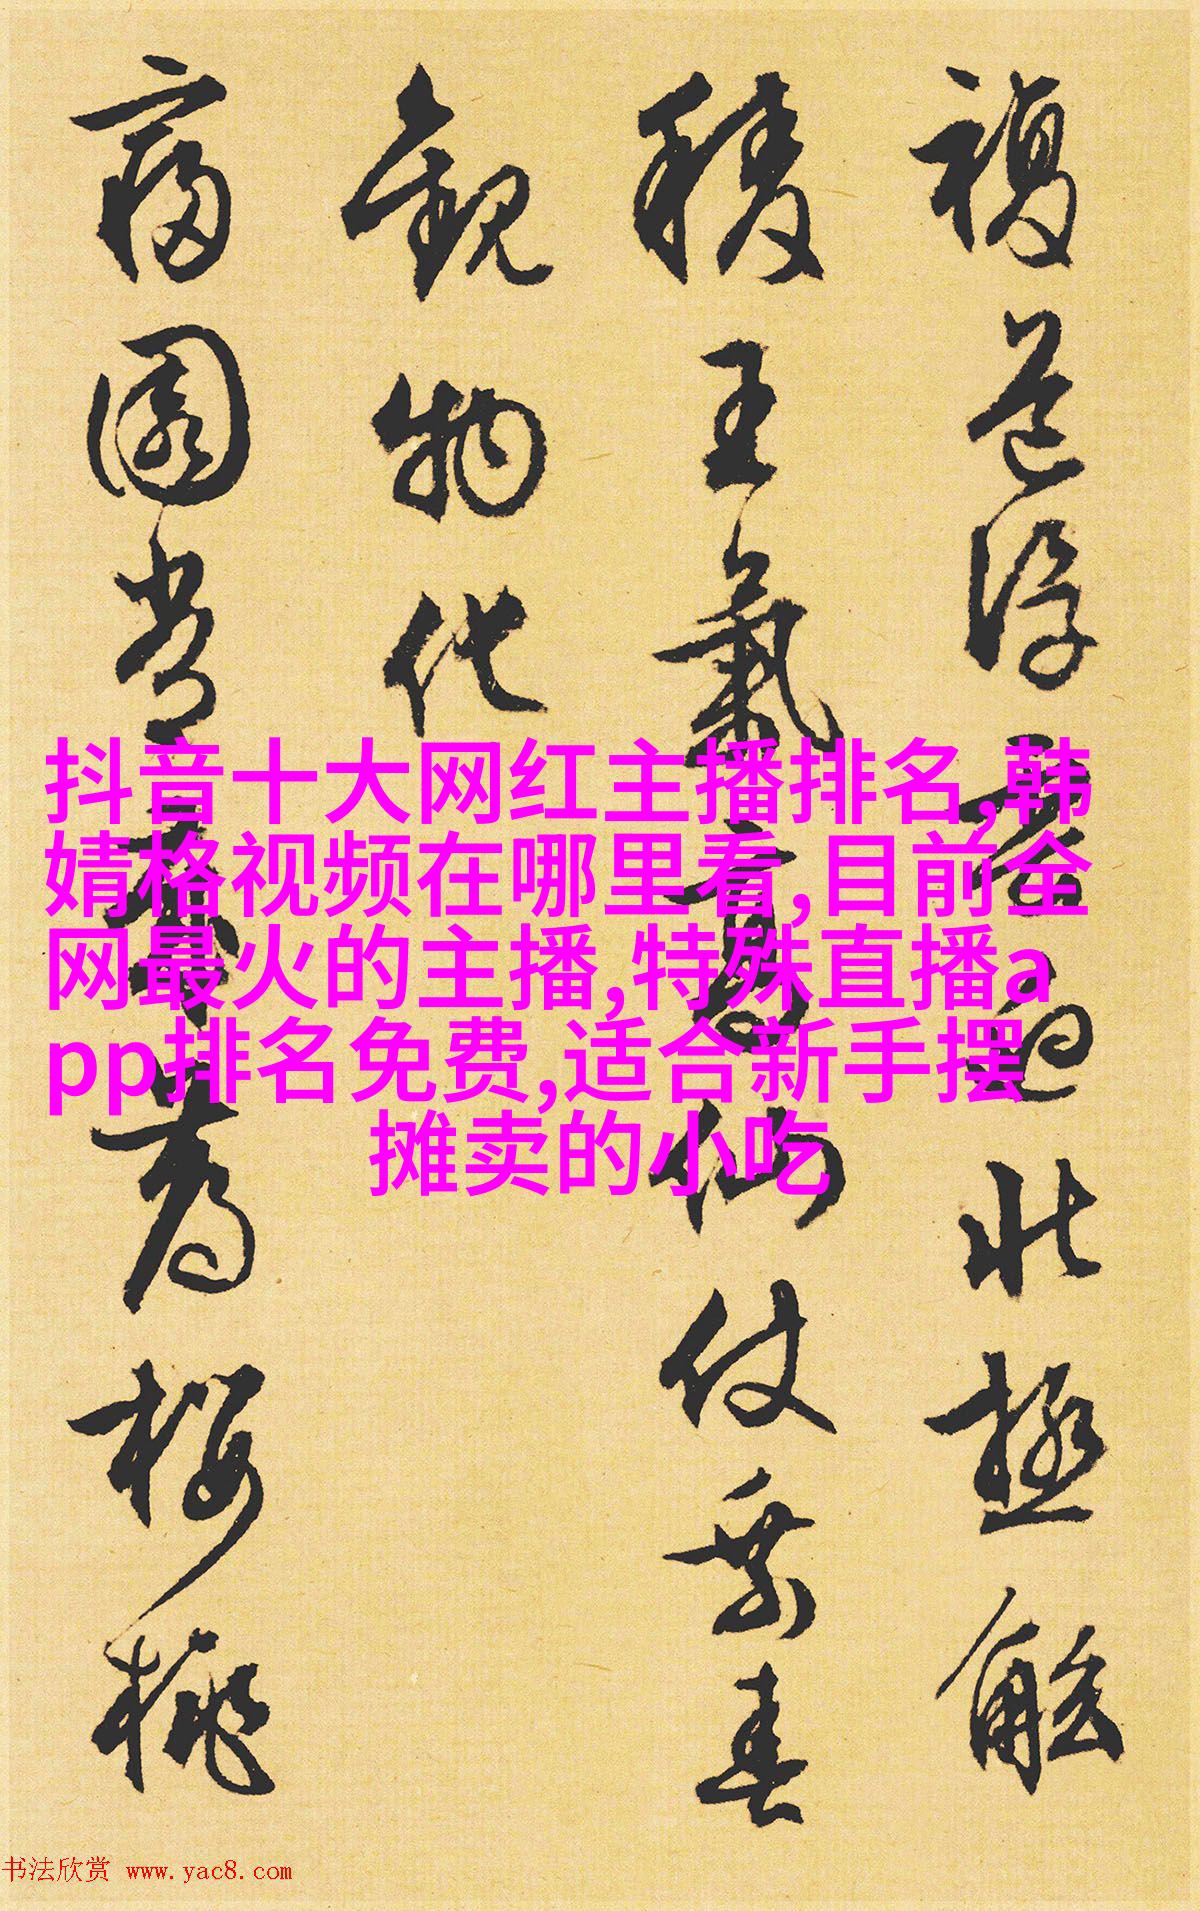 複道浮迥北極觚
稜王氣高仙仗乘春
觀物化
寢園常薦櫻桃
抖音十大网红主播排名,韩
婧格视频在哪里看,目前全
网最火的主播,特殊直播a
pp排名免费,适合新手摆
摊卖的小吃
书法欣赏 www.yac8.com